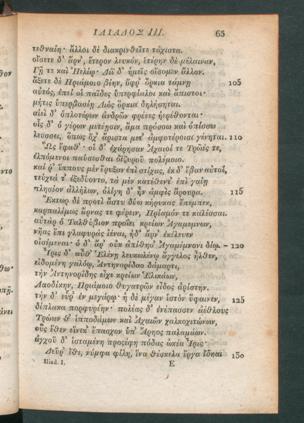 ΙΛΙΑΔΟΣ III. 65
τεθναίη· ἄλλοι δὲ διακρινθεῖτε τάχιστα.
οἴσετε δ' ἄρν', ἕτερον λευκὸν, ἑτέρην δὲ μέλαιναν,
Γῇ τε καὶ Ἠελίῳ· Διῒ δ' ἡμεῖς οἴσομεν ἄλλον.
ἄξετε δὲ Πριάμοιο βίην, ὄφρ' ὅρκια τάμνῃ 105
αὐτὸς, ἐπεί οἱ παῖδες ὑπερφίαλοι καὶ ἄπιστοι·
μήτις ὑπερβασίῃ Διὸς ὅρκια δηλήσηται.
αἰεὶ δ' ὁπλοτέρων ἀνδρῶν φρένες ἠερέθονται·
οἷς δ' ὁ γέρων μετέῃσιν, ἅμα πρόσσω καὶ ὀπίσσω
λεύσσει, ὅπως ὄχ' ἄριστα μετ' ἀμφοτέροισι γένηται. 110
Ὣς ἔφαθ'· οἱ δ' ἐχάρησαν Ἀχαιοί τε Τρῶές τε,
ἐλπόμενοι παύσασθαι ὀϊζυροῦ πολέμοιο.
καί ῥ' ἵππους μὲν ἔρυξαν ἐπὶ στίχας, ἐκ δ' ἔβαν αὐτοί,
τεύχεά τ' ἐξεδύοντο, τὰ μὲν κατέθεντ' ἐπὶ γαίῃ
πλησίον ἀλλήλων, ὀλίγη δ' ἦν ἀμφὶς ἄρουρα. 115
Ἕκτωρ δὲ προτὶ ἄστυ δύω κήρυκας ἔπεμπεν,
καρπαλίμως ἄρνας τε φέρειν, Πρίαμόν τε καλέσσαι.
αὐτὰρ ὁ Ταλθύβιον προΐει κρείων Ἀγαμέμνων,
νῆας ἔπι γλαφυρὰς ἰέναι, ἠδ' ἄρν' ἐκέλευεν
οἰσέμεναι· ὁ δ' ἄρ' οὐκ ἀπίθησ' Ἀγαμέμνονι δίῳ. 120
Ἶρις δ' αὖθ' Ἑλένῃ λευκωλένῳ ἄγγελος ἦλθεν,
εἰδομένη γαλόῳ, Ἀντηνορίδαο δάμαρτι,
τὴν Ἀντηνορίδης εἶχε κρείων Ἑλικάων,
Λαοδίκην, Πριάμοιο θυγατρῶν εἶδος ἀρίστην.
τὴν δ' εὗρ' ἐν μεγάρῳ· ἡ δὲ μέγαν ἱστὸν ὕφαινεν, 125
δίπλακα πορφυρέην· πολέας δ' ἐνέπασσεν ἀέθλους
Τρώων θ' ἱπποδάμων καὶ Ἀχαιῶν χαλκοχιτώνων,
οὓς ἕθεν εἵνεκ' ἔπασχον ὑπ' Ἄρηος παλαμάων.
ἀγχοῦ δ' ἱσταμένη προσέφη πόδας ὠκέα Ἶρις·
Δεῦρ' ἴθι, νύμφα φίλη, ἵνα θέσκελα ἔργα ἴδηαι 130
Iliad. I. E